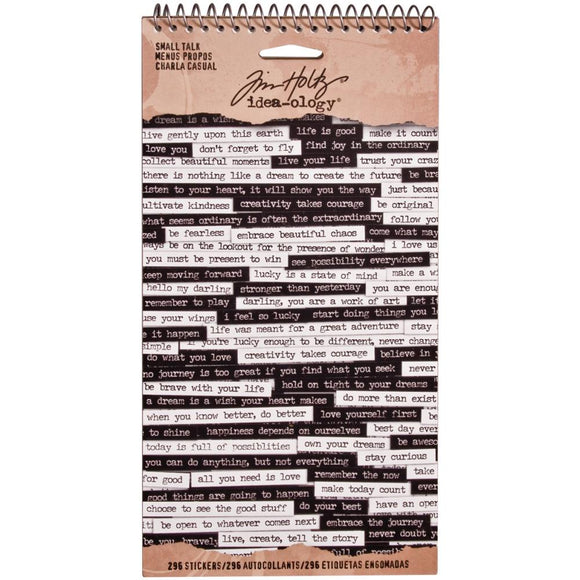 SMALL TALK
MENUS PROPOS
CHARLA CASUAL
Tim Holtz
idea-ology®
dream is a wish makes
live gently upon this earth life is good make it count
love you don't forget to fly find joy in the ordinary
collect beautiful moments live your life trust your craz
there is nothing like a dream to create the future be bra
isten to your heart, it will show you the way just becau
ultivate kindness creativity takes courage be original
what seems ordinary is often the extraordinary follow you
zed be fearless embrace beautiful chaos come what may
ays be on the lookout for the presence of wonder i love us
you must be present to win see possibility everywhere
keep moving forward lucky is a state of mind make a wi
hello my darling stronger than yesterday you are enoug
remember to play darling, you are a work of art let it
use your wings i feel so lucky start doing things you lo
e it happen life was meant for a great adventure stay
simple if you're lucky enough to be different, never change
do what you love creativity takes courage believe in y
no journey is too great if you find what you seek never
be brave with your life hold on tight to your dreams
a dream is a wish your heart makes do more than exist
when you know better, do better love yourself first be
to shine happiness depends on ourselves best day ever
today is full of possiblities own your dreams be aweso
you can do anything, but not everything stay curious
for good all you need is love remember the now take
good things are going to happen make today count ever
choose to see the good stuff do your best have an
it be open to whatever comes next embrace the journey
be you, bravely live, create, tell the story never doubt y
today is full of possibl
296 STICKERS/296 AUTOCOLLANTS/296 ETIQUETAS ENGOMADAS